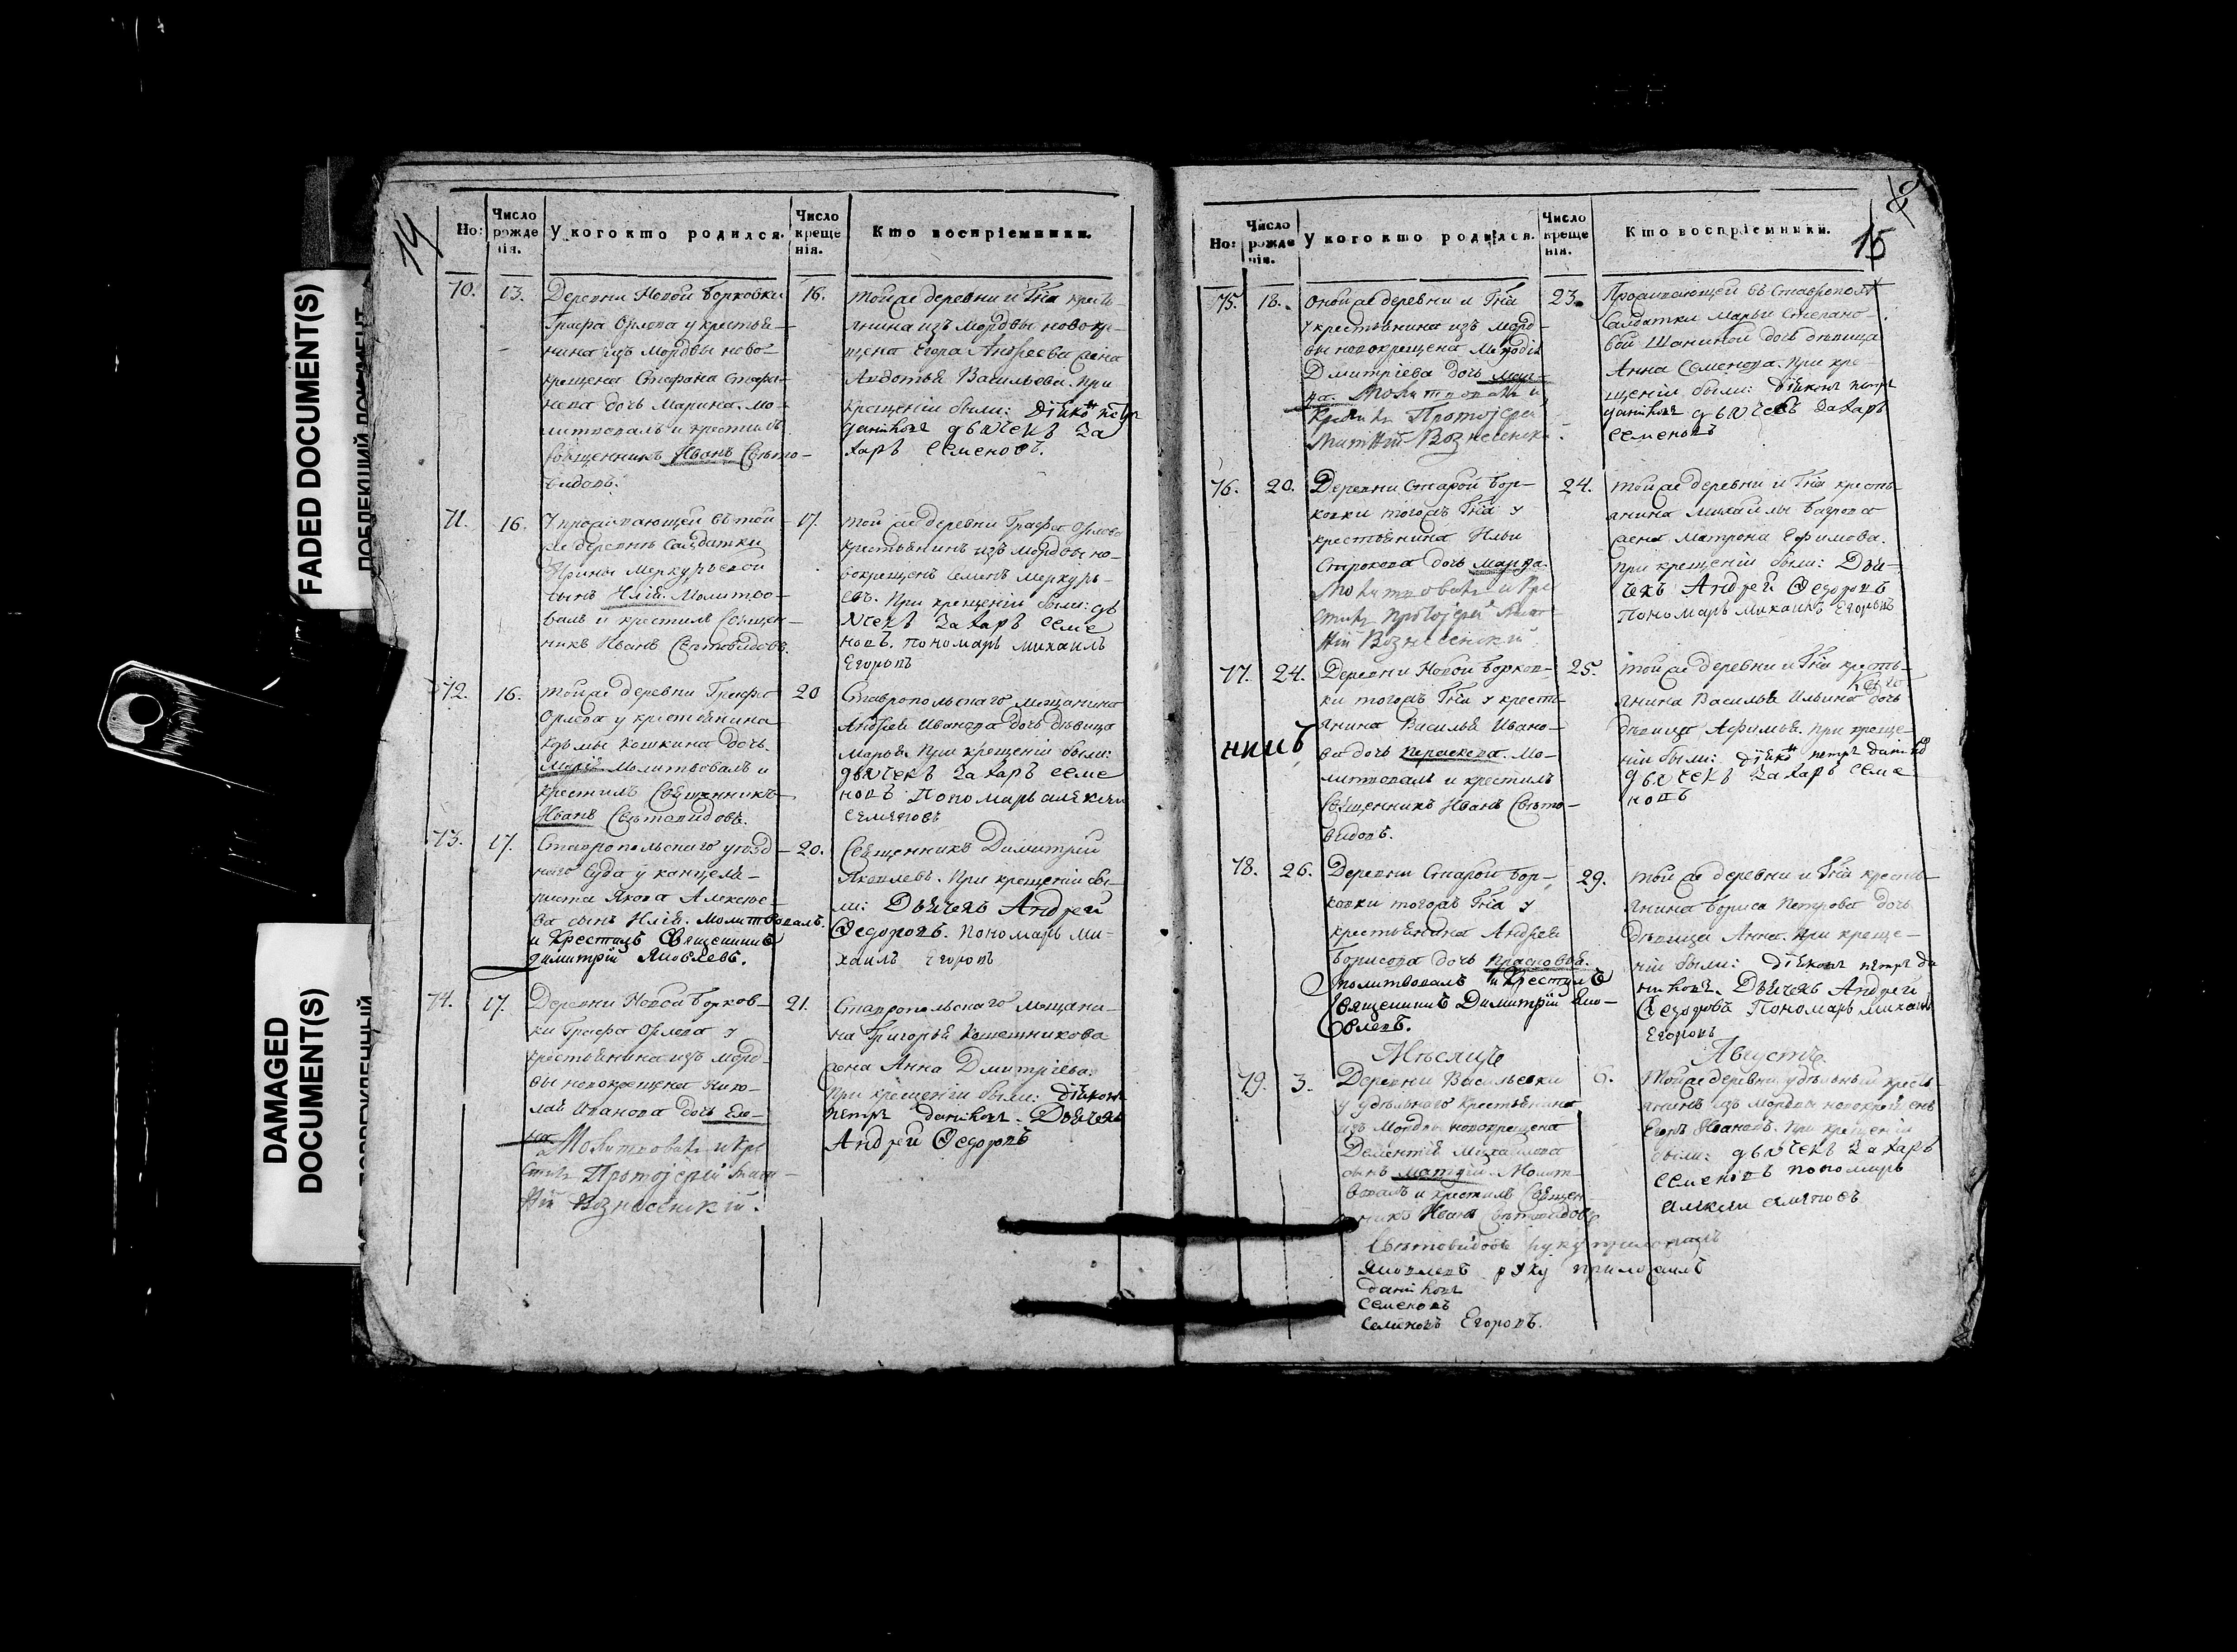 FADED DOCUMENT(S)
DAMAGED
DOCUMENT(S)
14
Но:
Число рожденія.
У кого кто родился.
Число крещенія.
Кто воспріемники.
70. 13. Деревни Новой Борковки
Графа Орлова у крестья-
нина изъ Мордвы ново-
крещена Стефана Стефа-
нова дочь Марина. Мо-
литвовалъ и крестилъ
Священникъ Иванъ Свѣто-
видовъ.
16. Той же деревни и Гна кресть-
янина изъ Мордвы новокре-
щена Егора Андреева жена
Авдотья Васильева. При
крещеніи были: діяконъ петръ
даніловъ дьячекъ За
харъ Семеновъ.
71. 16. У проживающей въ той
же деревнѣ Салдатки
Ирины Меркурьевой
сынъ Илія. Молитво-
валъ и крестилъ Священ-
никъ Иванъ Свѣтовидовъ.
17. Той же деревни Графа Орлова
крестьянинъ изъ Мордвы но-
вокрещенъ Семенъ Меркурь-
евъ. При крещеніи были: дь
ячекъ Захаръ Семе
новъ. пономарь михаилъ
Егоровъ
72. 16. Той же деревни Графа
Орлова у крестьянина
Кузьмы Кошкина дочь
Марія. Молитвовалъ и
крестилъ Священникъ
Иванъ Свѣтовидовъ.
20 Ставропольскаго мещанина
Андрея Иванова дочь дѣвица
Марья. При крещеніи были:
дьячекъ Захаръ Семе
новъ Пономарь алексеи
семеновъ
73. 17. Ставропольскаго уѣзд-
наго Суда у канцеля-
риста Якова Алексее-
ва сынъ Илія. Молитвовалъ
и Крестилъ Священникъ
Димитрій Яковлевъ.
20. Священникъ Димитрій
Яковлевъ. При крещеніи бы-
ли: Дьячекъ Андрей
Федоровъ. Пономарь Ми-
хаилъ Егоровъ
74. 17. Деревни Новой Борков-
ки Графа Орлова у
крестьянина изъ Морд-
вы новокрещена Нико-
лая Иванова дочь
Молитвовалъ и Кре
стилъ Протоіерей
Вознесенскій.
21. Ставропольскаго мещани-
на Григорья Кашетникова
жена Анна Дмитріева.
При крещеніи были: діяконъ
петръ даніловъ. Дьячекъ
Андрей Федоровъ
15
Но:
Число рожденія.
У кого кто родился.
Число крещенія.
Кто воспріемники.
75. 18. Оной же деревни и Гна
у крестьянина изъ Морд-
вы новокрещена Меѳодія
Дмитріева дочь
Молитвовалъ и
Крестилъ Протоіерей
Вознесенск
23. Проживающей въ Ставрополѣ
Салдатки Марьи Степано-
вой Шаниной дочь дѣвица
Анна Семенова. При кре-
щеніи были: діяконъ петръ
даніловъ дьячекъ Захаръ
Семеновъ
76. 20. Деревни Старой Бор-
ковки тогожъ Гна у
крестьянина Ильи
Строкова дочь Марѳа.
Молитвовалъ и Кре
стилъ Протоіерей
Вознесенскій
24. Той же деревни и Гна кресть-
янина Михайлы Багрова
жена Матрена Ефимова.
При крещеніи были: Дья-
чекъ Андрей Федоровъ
Пономарь Михаилъ Егоровъ
77. 24. Деревни Новой Борков-
ки тогожъ Гна у кресть-
янина Василья Ивано-
ва дочь Параскева. Мо-
литвовалъ и крестилъ
Священникъ Иванъ Свѣто-
видовъ.
25. Той же деревни и Гна кресть-
янина Василья Ильина дочь
дѣвица Афимья. При креще-
ніи были: діяконъ петръ даніловъ
дьячекъ Захаръ Семе
новъ
78. 26. Деревни Старой Бор-
ковки тогожъ Гна у
крестьянина Андрея
Борисова дочь Прасковья.
Молитвовалъ и Крестилъ
Священникъ Димитрій Яко-
влевъ.
29. Той же деревни и Гна кресть-
янина Бориса Петрова дочь
дѣвица Анна. При креще-
ніи были: діяконъ петръ да
ніловъ. Дьячекъ Андрей
Федоровъ Пономарь Михаилъ
Егоровъ
Мѣсяцъ Августъ
79. 3. Деревни Васильевки
у удѣльнаго крестьянина
изъ Мордвы новокрещена
Дементія Михайлова
сынъ Матѳій. Молит-
вовалъ и крестилъ Священ-
никъ Иванъ Свѣтовидовъ
6. Той же деревни удѣльный кресть-
янинъ изъ Мордвы новокрещенъ
Егоръ Ивановъ. При крещеніи
были: дьячекъ Захаръ
Семеновъ пономарь
алексеи семеновъ
Свѣтовидовъ руку приложилъ
Яковлевъ руку приложилъ
даніловъ
Семеновъ
Семеновъ Егоровъ.